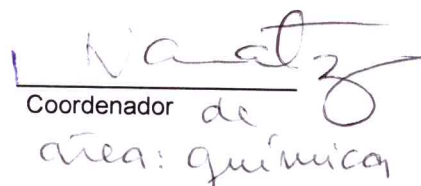 Coordenador de
área: química